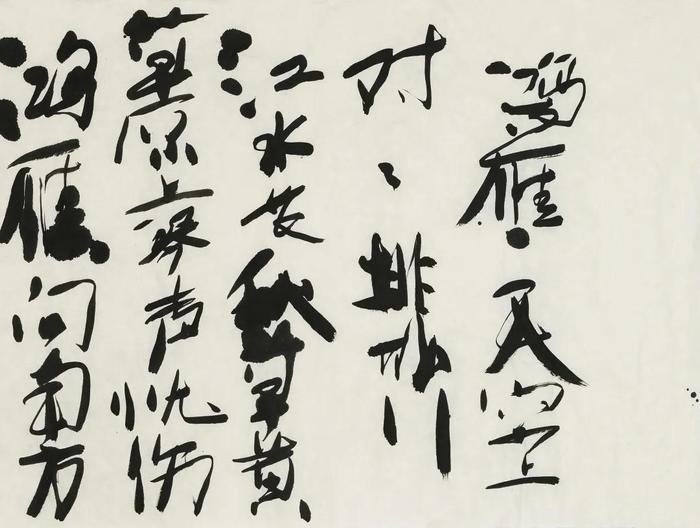 鸿雁天空上
对对排成行
江水长秋草黄
草原上琴声忧伤
鸿雁向南方